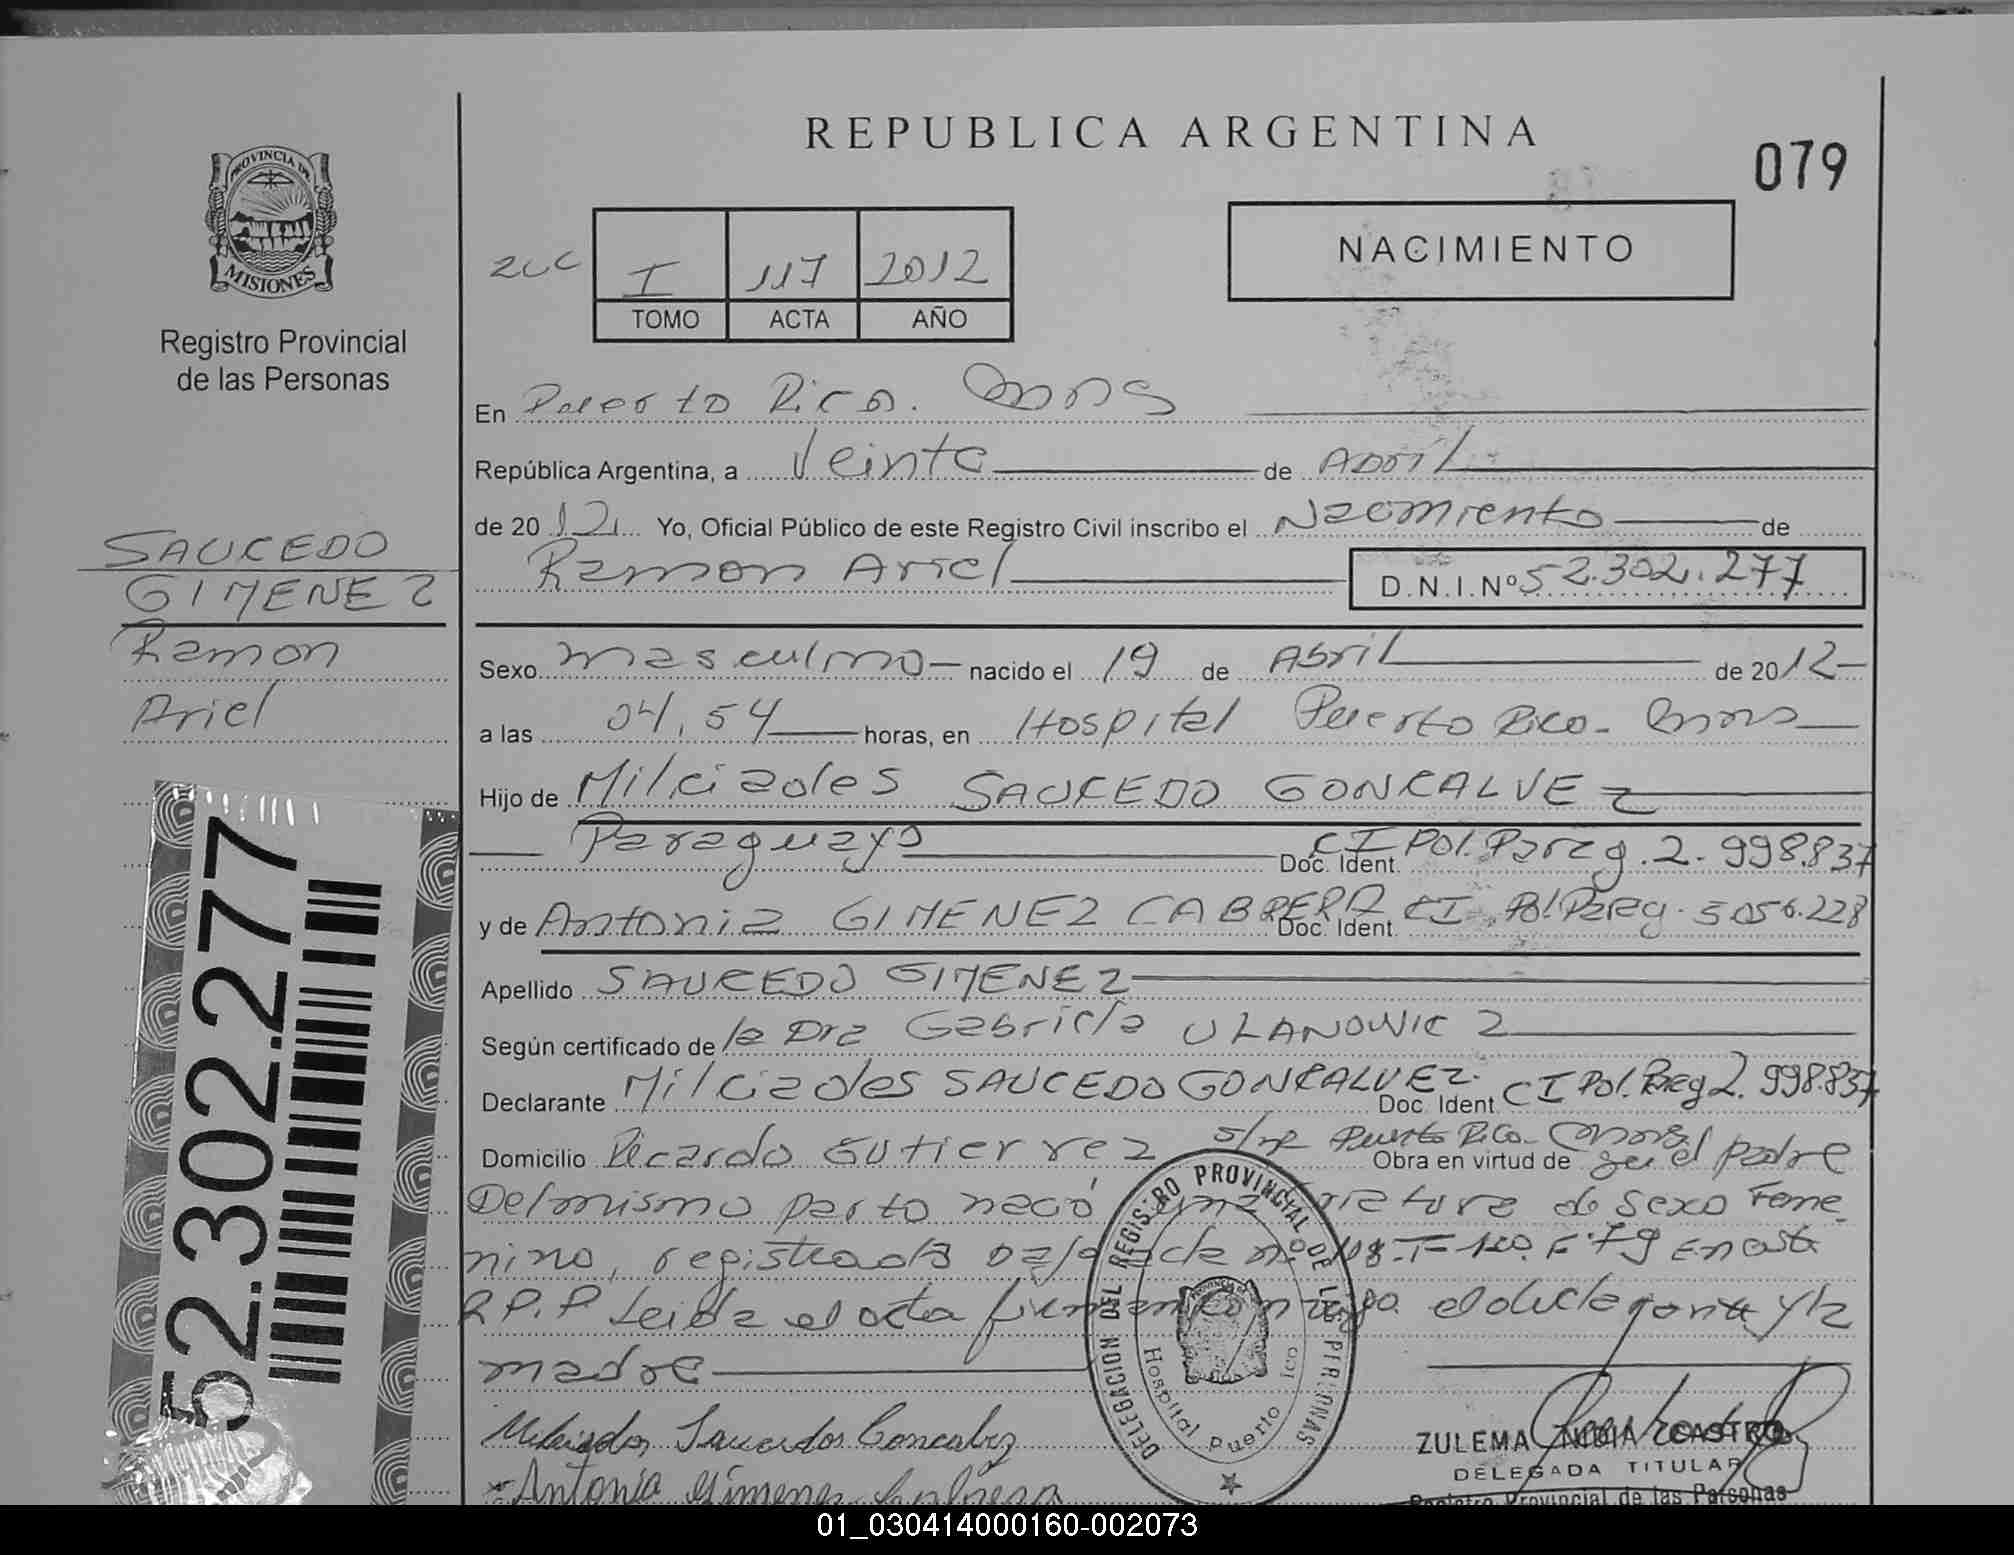 REPUBLICA ARGENTINA
079
PROVINCIA DE
MISIONES
Registro Provincial
de las Personas
I 117 2012
TOMO ACTA AÑO
NACIMIENTO
En Puerto Rico. Mnes
República Argentina, a Veinte de Abril
de 2012 Yo, Oficial Público de este Registro Civil inscribo el Nacimiento de
Ramon Ariel D.N.I.Nº 52.302.277
SAUCEDO
GIMENEZ
Ramon
Ariel
Sexo masculino nacido el 19 de Abril de 2012
a las 04,54 horas, en Hospital Puerto Rico. Mnes
Hijo de Milciades SAUCEDO GONCALVEZ
Paraguayo Doc. Ident. CI Pol. Parag. 2.998.837
y de Antonia GIMENEZ CABRERA Doc. Ident. CI Pol Parag. 5056.228
Apellido SAUCEDO GIMENEZ
Según certificado de la Dra Gabriela ULANOWICZ
Declarante Milciades SAUCEDO GONCALVEZ. Doc. Ident. CI Pol. Parag 2.998.837
Domicilio Ricardo Gutierrez s/nº Puerto Rico Obra en virtud de ser el padre
Del mismo parto nació una criatura de sexo Feme
nino, registrada bajo acta nº 118. F 79 En esta
R.P.P Leida el acta firman conmigo el declarante y la
madre
52.302.277
DELEGACION DEL REGISTRO PROVINCIAL DE LAS PERSONAS
Hospital Puerto Rico
Milciades Saucedo Goncalvez
Antonia Gimenez Cabrera
ZULEMA NIDIA CASTRO
DELEGADA TITULAR
Registro Provincial de las Personas
01_030414000160-002073